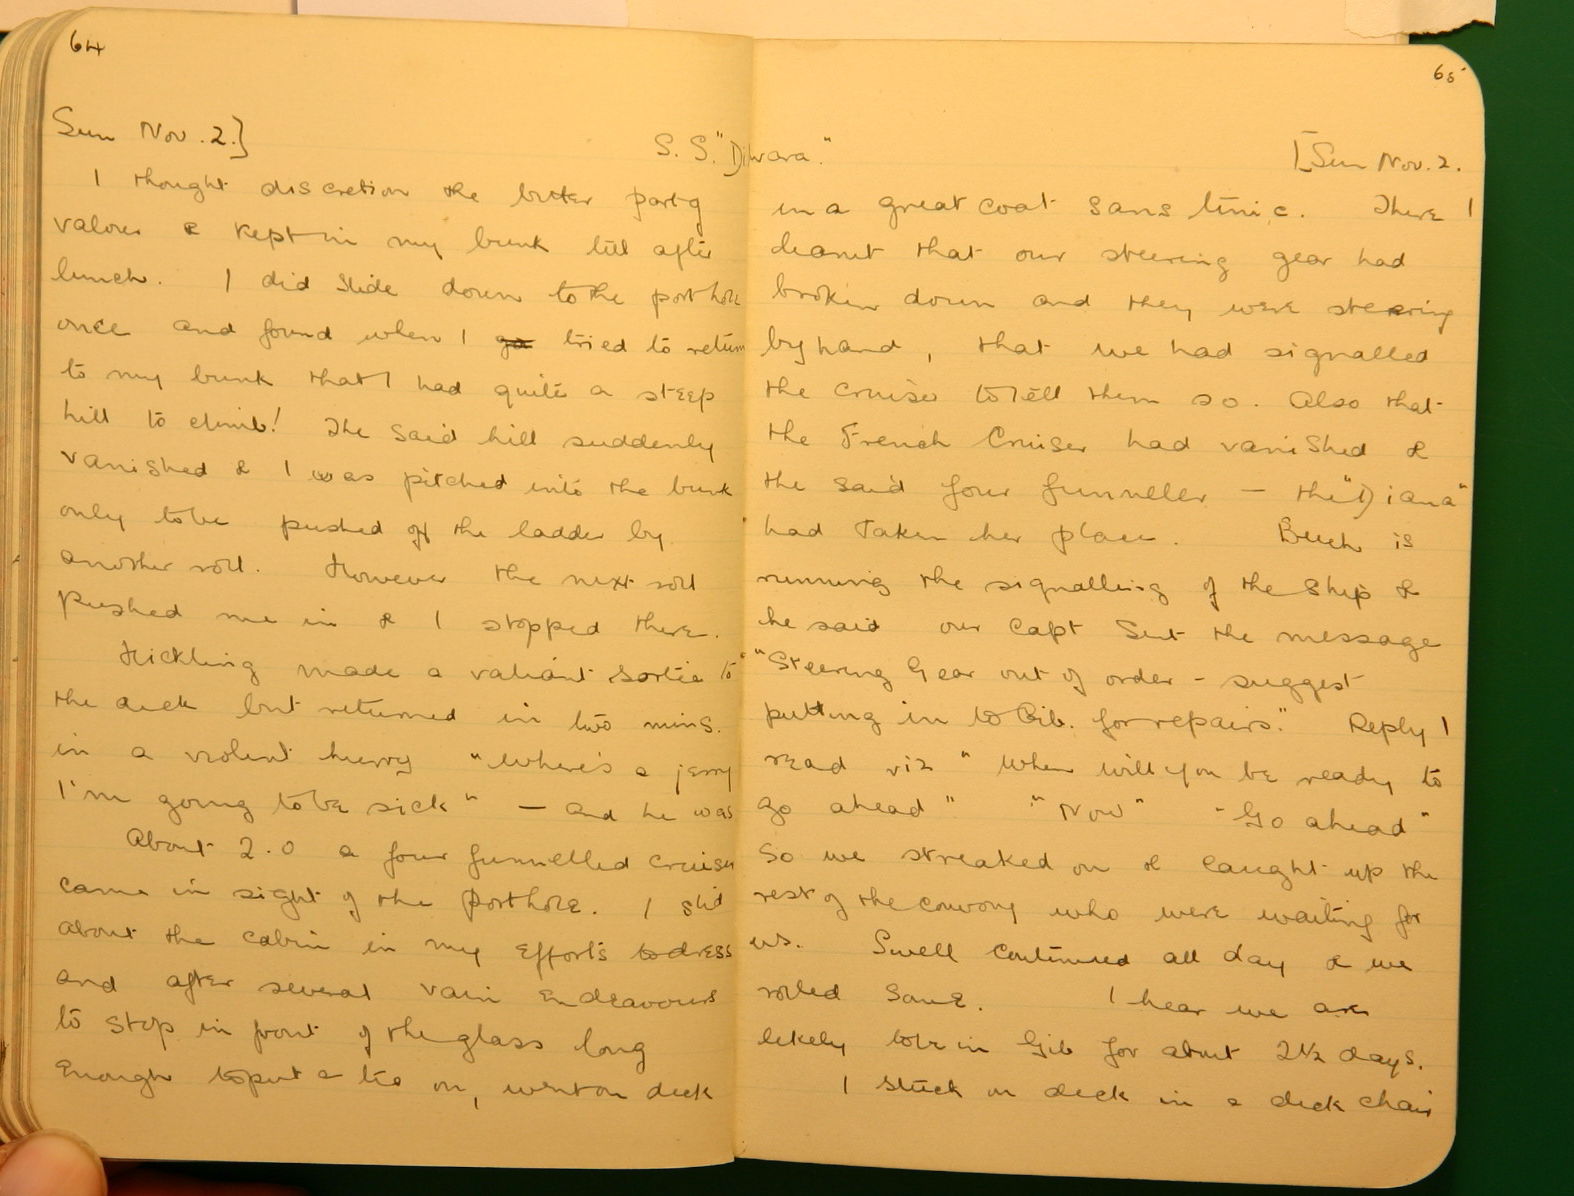 64
Sun Nov. 2.]
I thought discretion the better part of
valour & kept in my bunk till after
lunch. I did slide down to the porthole
once and found when I tried to return
to my bunk that I had quite a steep
hill to climb! The said hill suddenly
vanished & I was pitched into the bunk
only to be pushed off the ladder by
another roll. However the next roll
pushed me in & I stopped there.
Hickling made a valiant sortie to
the deck but returned in two mins.
in a violent hurry "Where's a jerry
I'm going to be sick" — and he was
About 2.0 a four funnelled cruiser
came in sight of the porthole. I slid
about the cabin in my efforts to dress
and after several vain endeavours
to stop in front of the glass long
enough to put a tie on, went on deck
65
S.S. "Dilwara."
[Sun Nov. 2.
in a great coat sans tunic. There I
learnt that our steering gear had
broken down and they were steering
by hand, that we had signalled
the cruiser to tell them so. Also that
the French Cruiser had vanished &
the said four funneller — the "Diana"
had taken her place. is
running the signalling of the ship &
he said our Capt sent the message
"Steering Gear out of order - suggest
putting in to Gib. for repairs." Reply I
read viz "When will you be ready to
go ahead" "Now" "Go ahead"
So we streaked on & caught up the
rest of the convoy who were waiting for
us. Swell continued all day & we
rolled some. I hear we are
likely to be in Gib for about 2½ days.
I stuck on deck in a deck chair